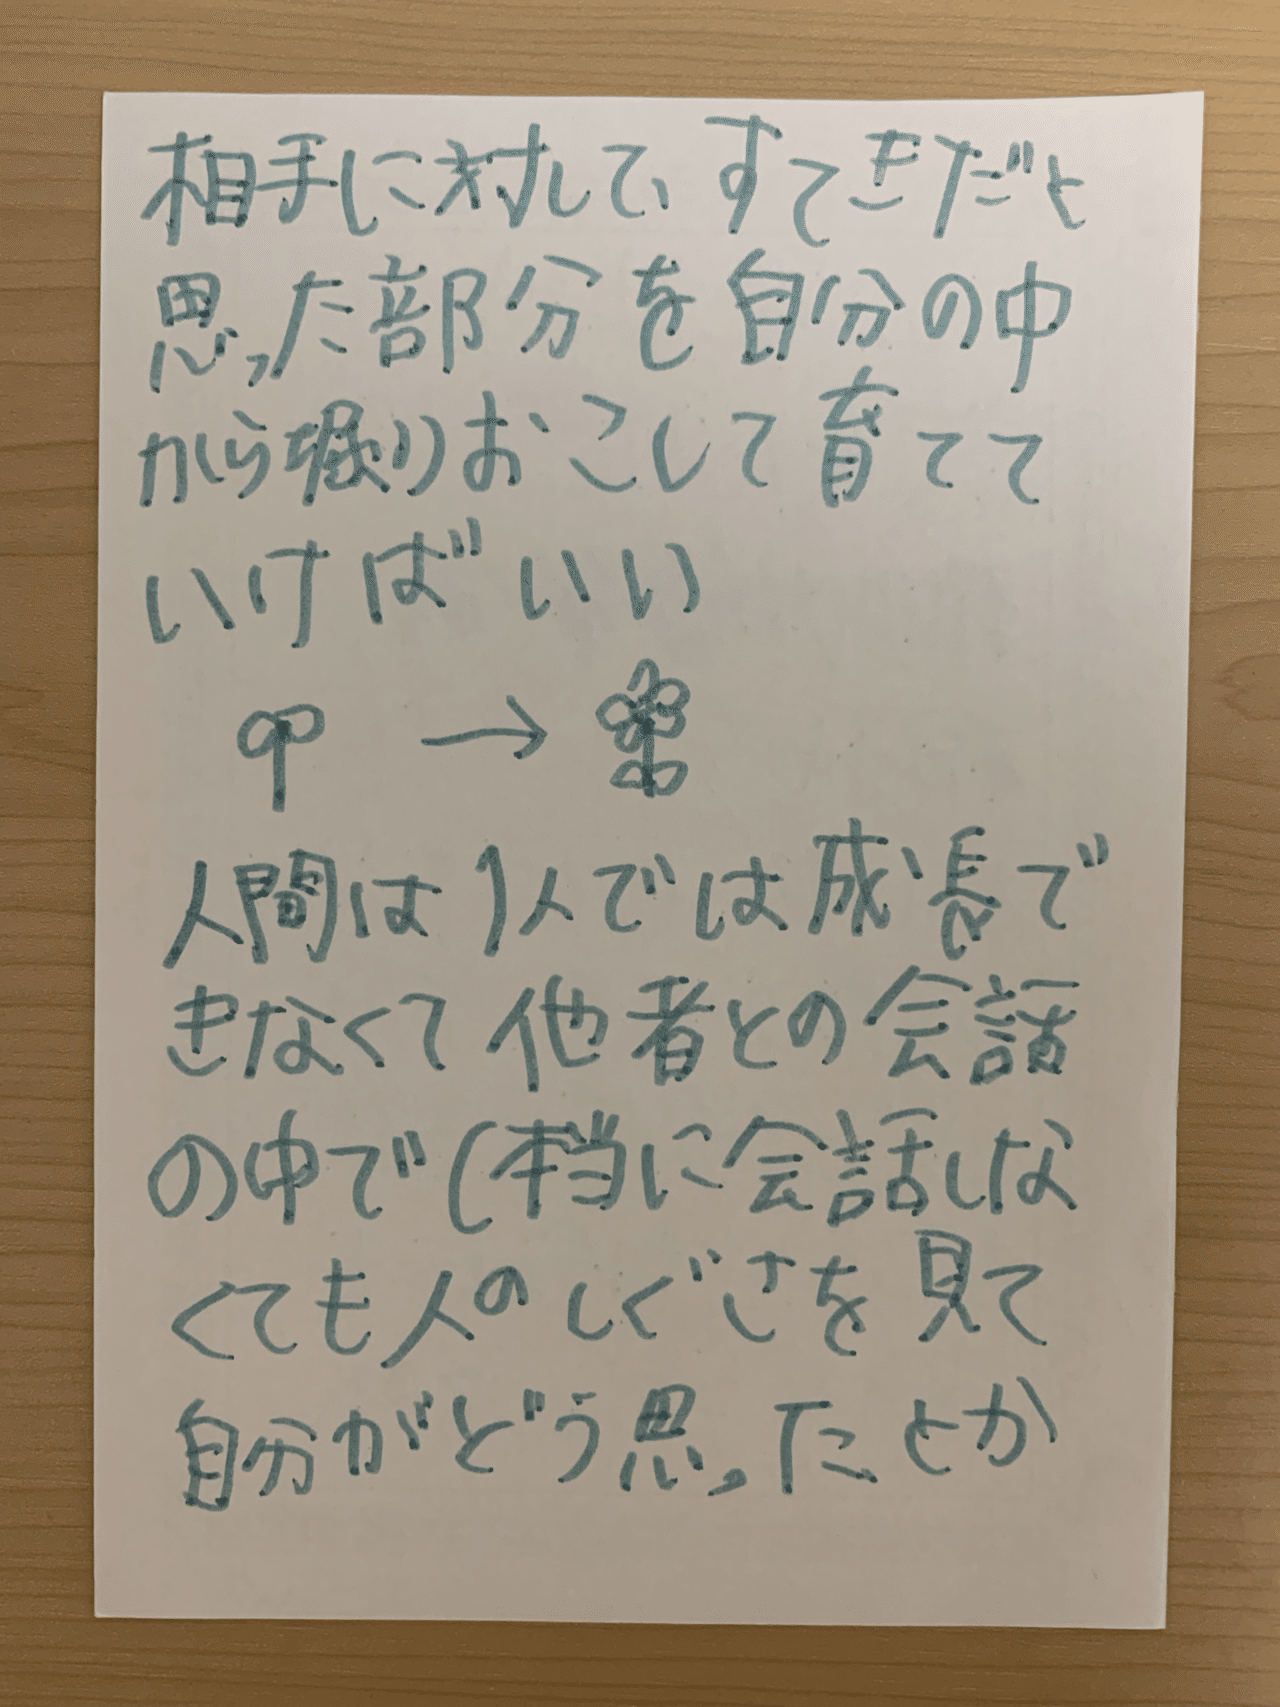 相手に対して、すてきだと
思った部分を自分の中
から掘りおこして育てて
いけばいい
→
人間は1人では成長で
きなくて他者との会話
の中で(本当に会話しな
くても人のしぐさを見て
自分がどう思ったとか